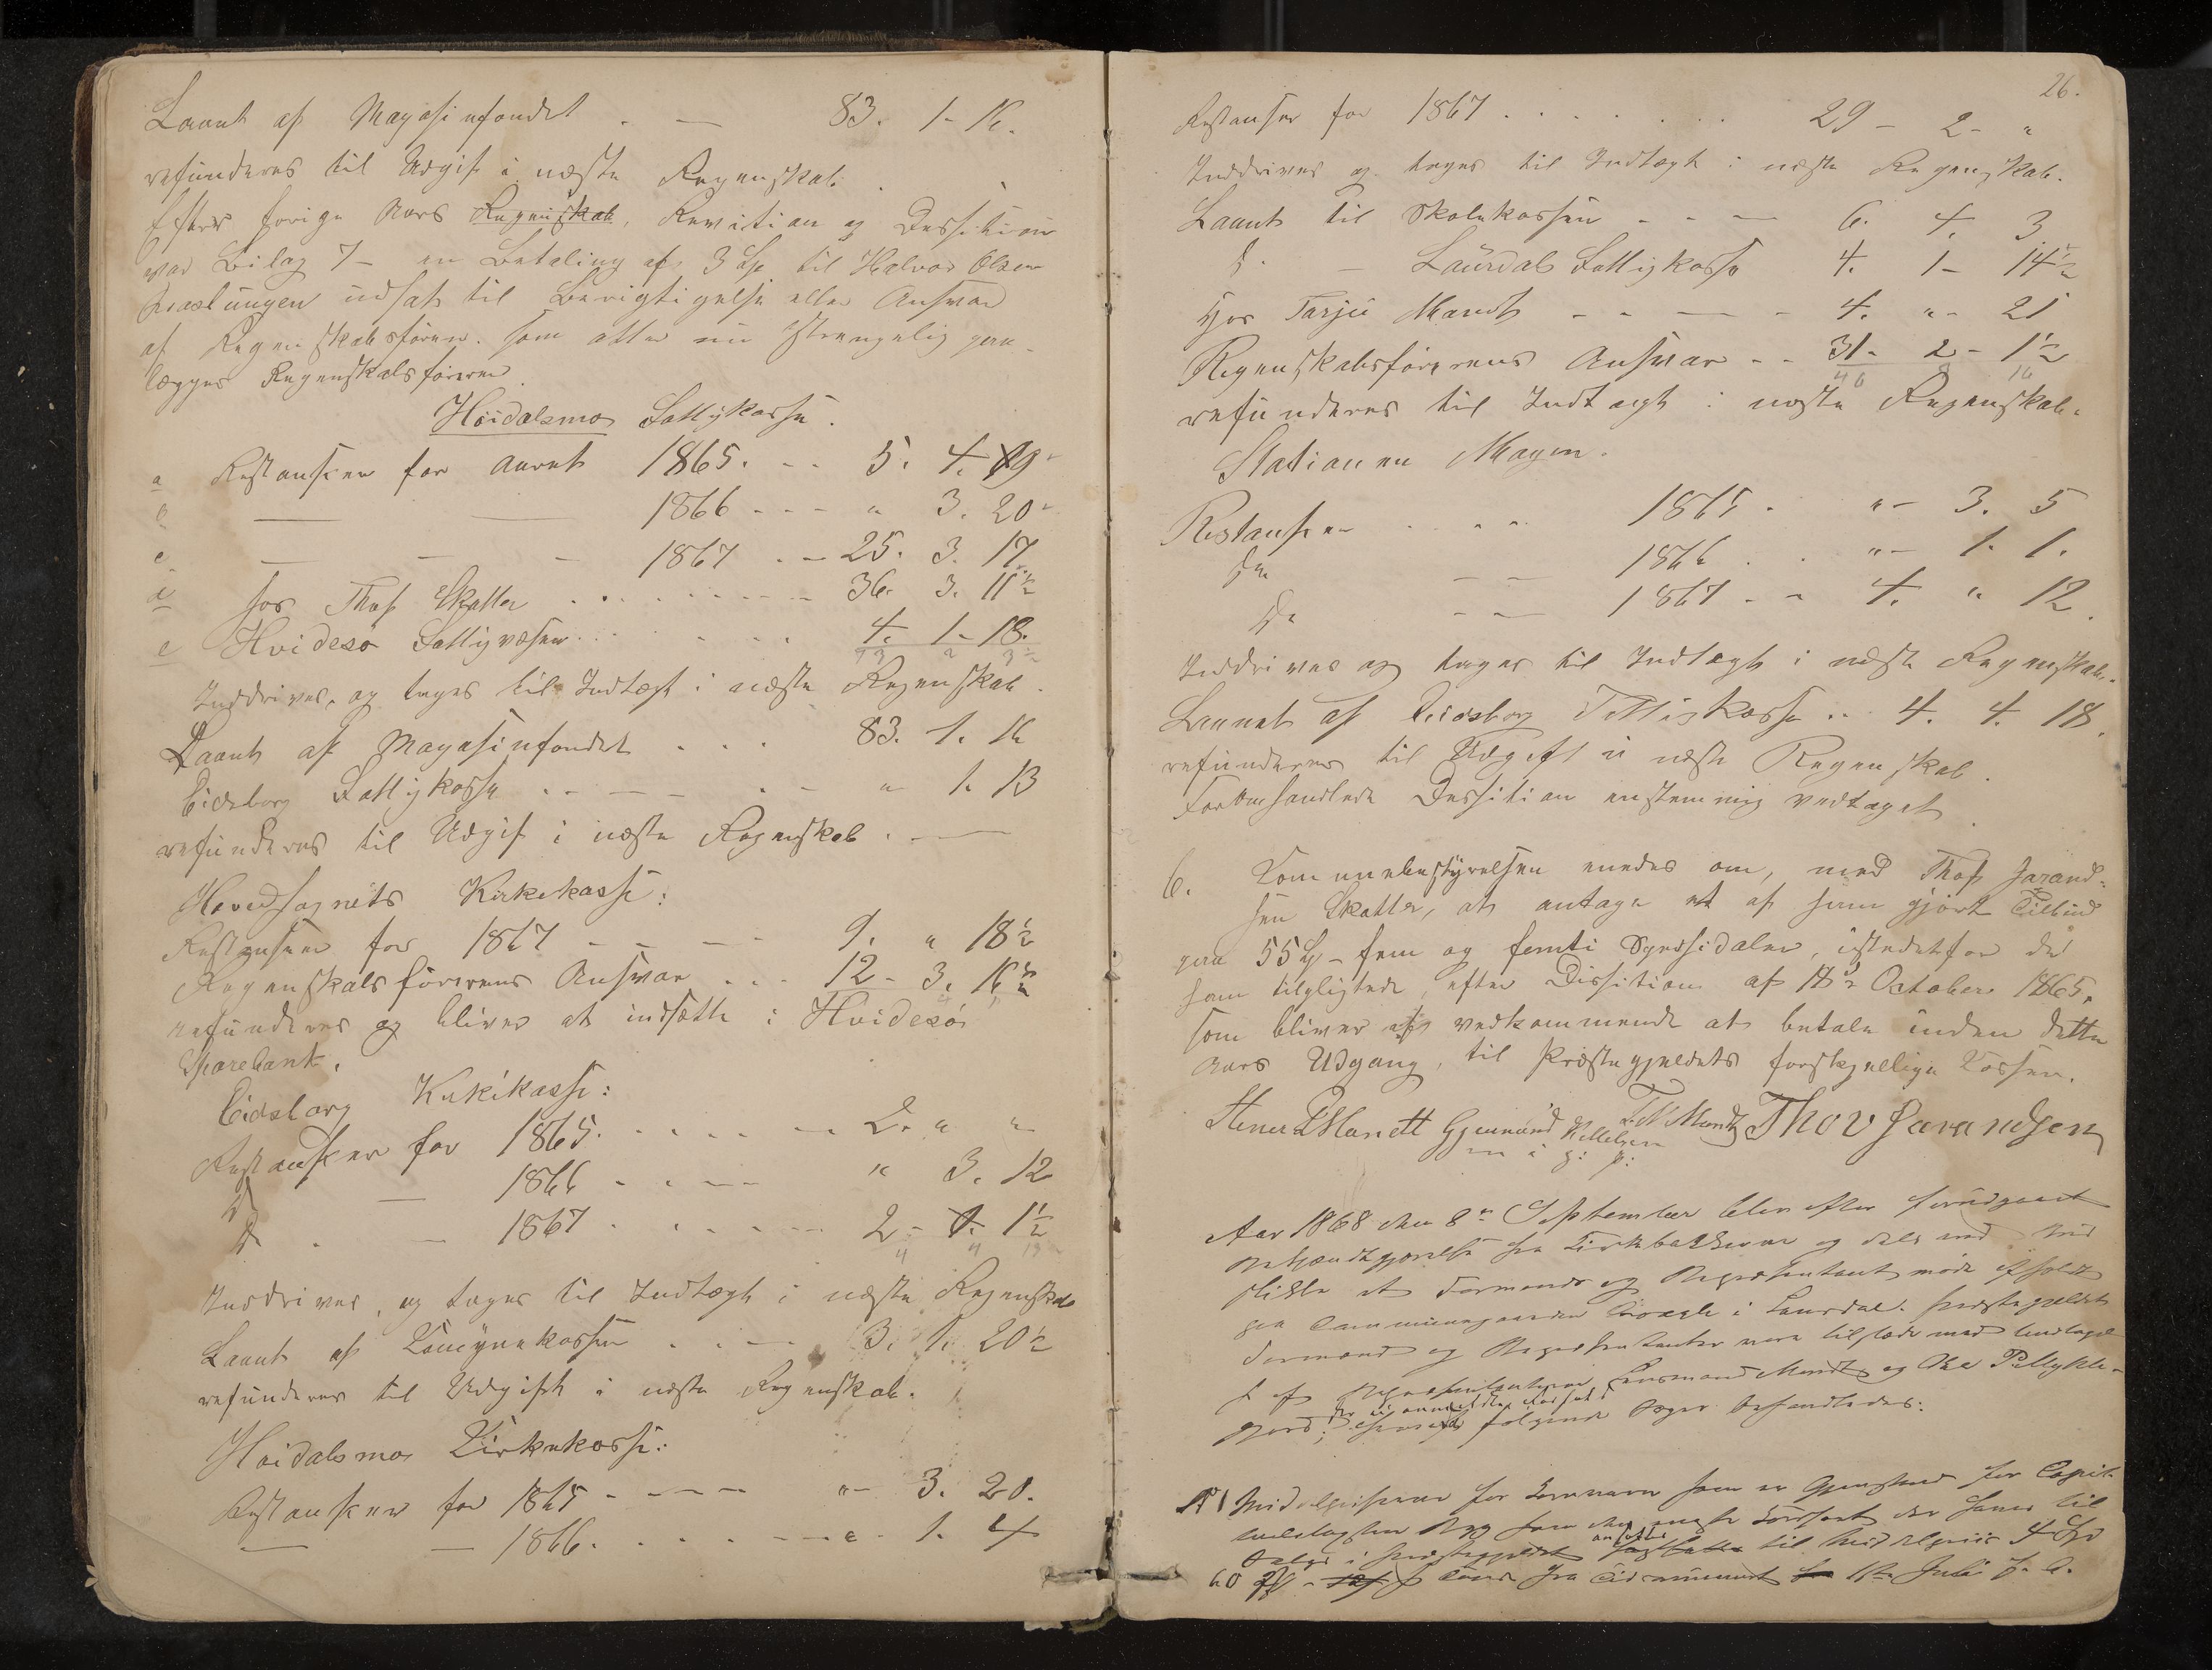 Laant af Magasinfondet . — 83. 1 - 16.
refunderes til Udgift i næste Regenskab.
Efter forige Aars Regenskab, Revition og Dessition
var Bilag 7 - en Betaling af 3 Sp til Halvor Olsen
udsat til Berigtigelse eller Ansvar
af Regenskabsföreren. som atter nu strengelig paa-
lægges Regenskabsföreren
Höidalsmo Fattigkasse.
a Restanser for Aaret 1865. - - 5. 4. 19
b — — 1866 - - - " 3. 20
c — - - 1867 . - 25. 3. 17
d hos Thof Skatter . . . . - - - 36. 3. 11½
e Hvidesø Fattigvæsen . . . . 4. 1 - 18.
Inddrives, og tages til Indtægt i næste Regenskab.
Laant af Magasinfondet . . . 83. 1. 16
Eidsborg Fattigkasse . - — - . - " 1. 13
refunderes til Udgift i næste Regenskab. —
Hovedsognets Kirkekasse:
Restanser for 1867 - - - - 9. " 18½
Regenskabsförerens Ansvar . . . 12 - 3. 16½
refunderes og bliver at indsætte i Hvidesø
Sparebank.
Eidsborg Kirkekasse:
Restanser for 1865. . . . . - - 2. " "
D — 1866 . . - - " 3. 12
D . — 1867 . . . . - 2 - 1. 1½
Inddrives, og tages til Indtægt i næste Regenskab
Laant af Komunekassen . . . - 3. 1. 20½
refunderes til Udgift i næste Regenskab.
Höidalsmo Kirkekasse:
Restanser for 1865 - - - - " - 3. 20.
— — 1866. . . . . - - " - 1. 4
26.
Restanser for 1867 . . . . . . . 29 - 2 - "
Inddrives og tages til Indtægt i næste Regenskab.
Laant til Skolekassen - - — 6. 4. 3
D. — Laurdals Fattigkasse 4. 1 - 14½
Hos Tarju Mandt - - — - - 4. " - 21
Regenskabsförerens Ansvar - - 31 - 2 - 1½
46 16
refunderes til Indtægt i næste Regenskab.
Stationen Mogen.
Restanser . . . . 1865 . " - 3. 5
Do — — 1866 . . " - 1. 1.
Do — — 1867 - - 4. " 12.
Inddrives og tages til Indtægt i næste Regenskab.
Laant af Eidsborg Fattigkasse . . 4. 4. 18.
refunderes til Udgift i næste Regenskab.
Foromhandlede Dessition enstemmig vedtaget.
6. Kommunebestyrelsen enedes om, med Thof Jarand-
sen Skatter, at antage et af ham gjort Tilbud
paa 55 Sp - fem og femti Spessidaler, istedetfor det
ham tilpligtede, efter Dissition af 18de October 1865.
som bliver af vedkommende at betale inden dette
Aars Udgang, til Præstegjeldets forskjellige Kasser.
Stener Mandt Gjermund Kittelsen T. Mandt Thov Jarandsen
m i g: p:
Aar 1868 den 8de September blev efter forudgaaet
Bekjendtgjørelse fra Kirkbakkerne og dels ved
at Formands og Repræsentant möde afholdt
paa Communegaarden i Laurdal. Præstegjeldets
Formænd og Repræsentanter vare tilstede med Undtagelse
af Repræsentanterne Lensmand Mandt og Ole
følgende Sager behandledes:
No 1 Middelprisen for Kornvarer som er Gjenstand for Capitel
til Middelpriis 4 Spd
60 Tönde fra Juli